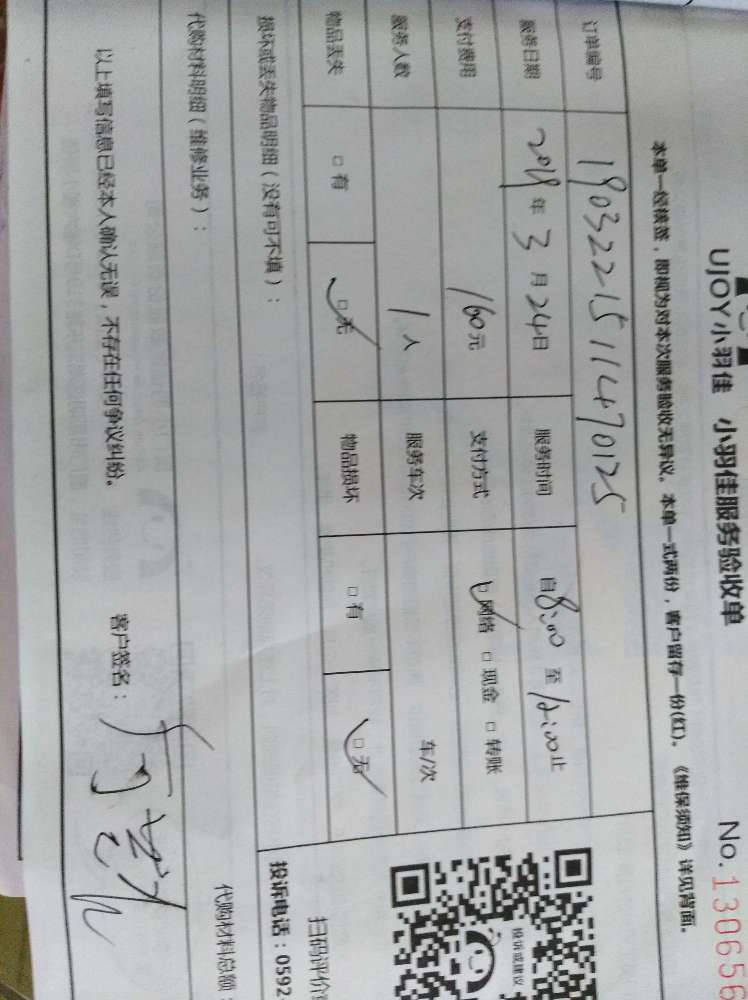 UJOY小羽佳 小羽佳服务验收单
No.130656
本单一经核签，即视为对本次服务验收无异议。本单一式两份，客户留存一份(红)。《维保须知》详见背面。
订单编号 1903221511470125
服务日期 2019年3月24日 服务时间 自8:00至12:00止
支付费用 160元 支付方式 ☑网络 □现金 □转账
服务人数 1人 服务车次 车/次
物品丢失 □有 ☑无 物品损坏 □有 ☑无
损坏或丢失物品明细（没有可不填）：
代购材料明细（维修业务）：
代购材料总额：
以上填写信息已经本人确认无误，不存在任何争议纠纷。 客户签名：
投诉或建议
扫码评价
投诉电话：0592